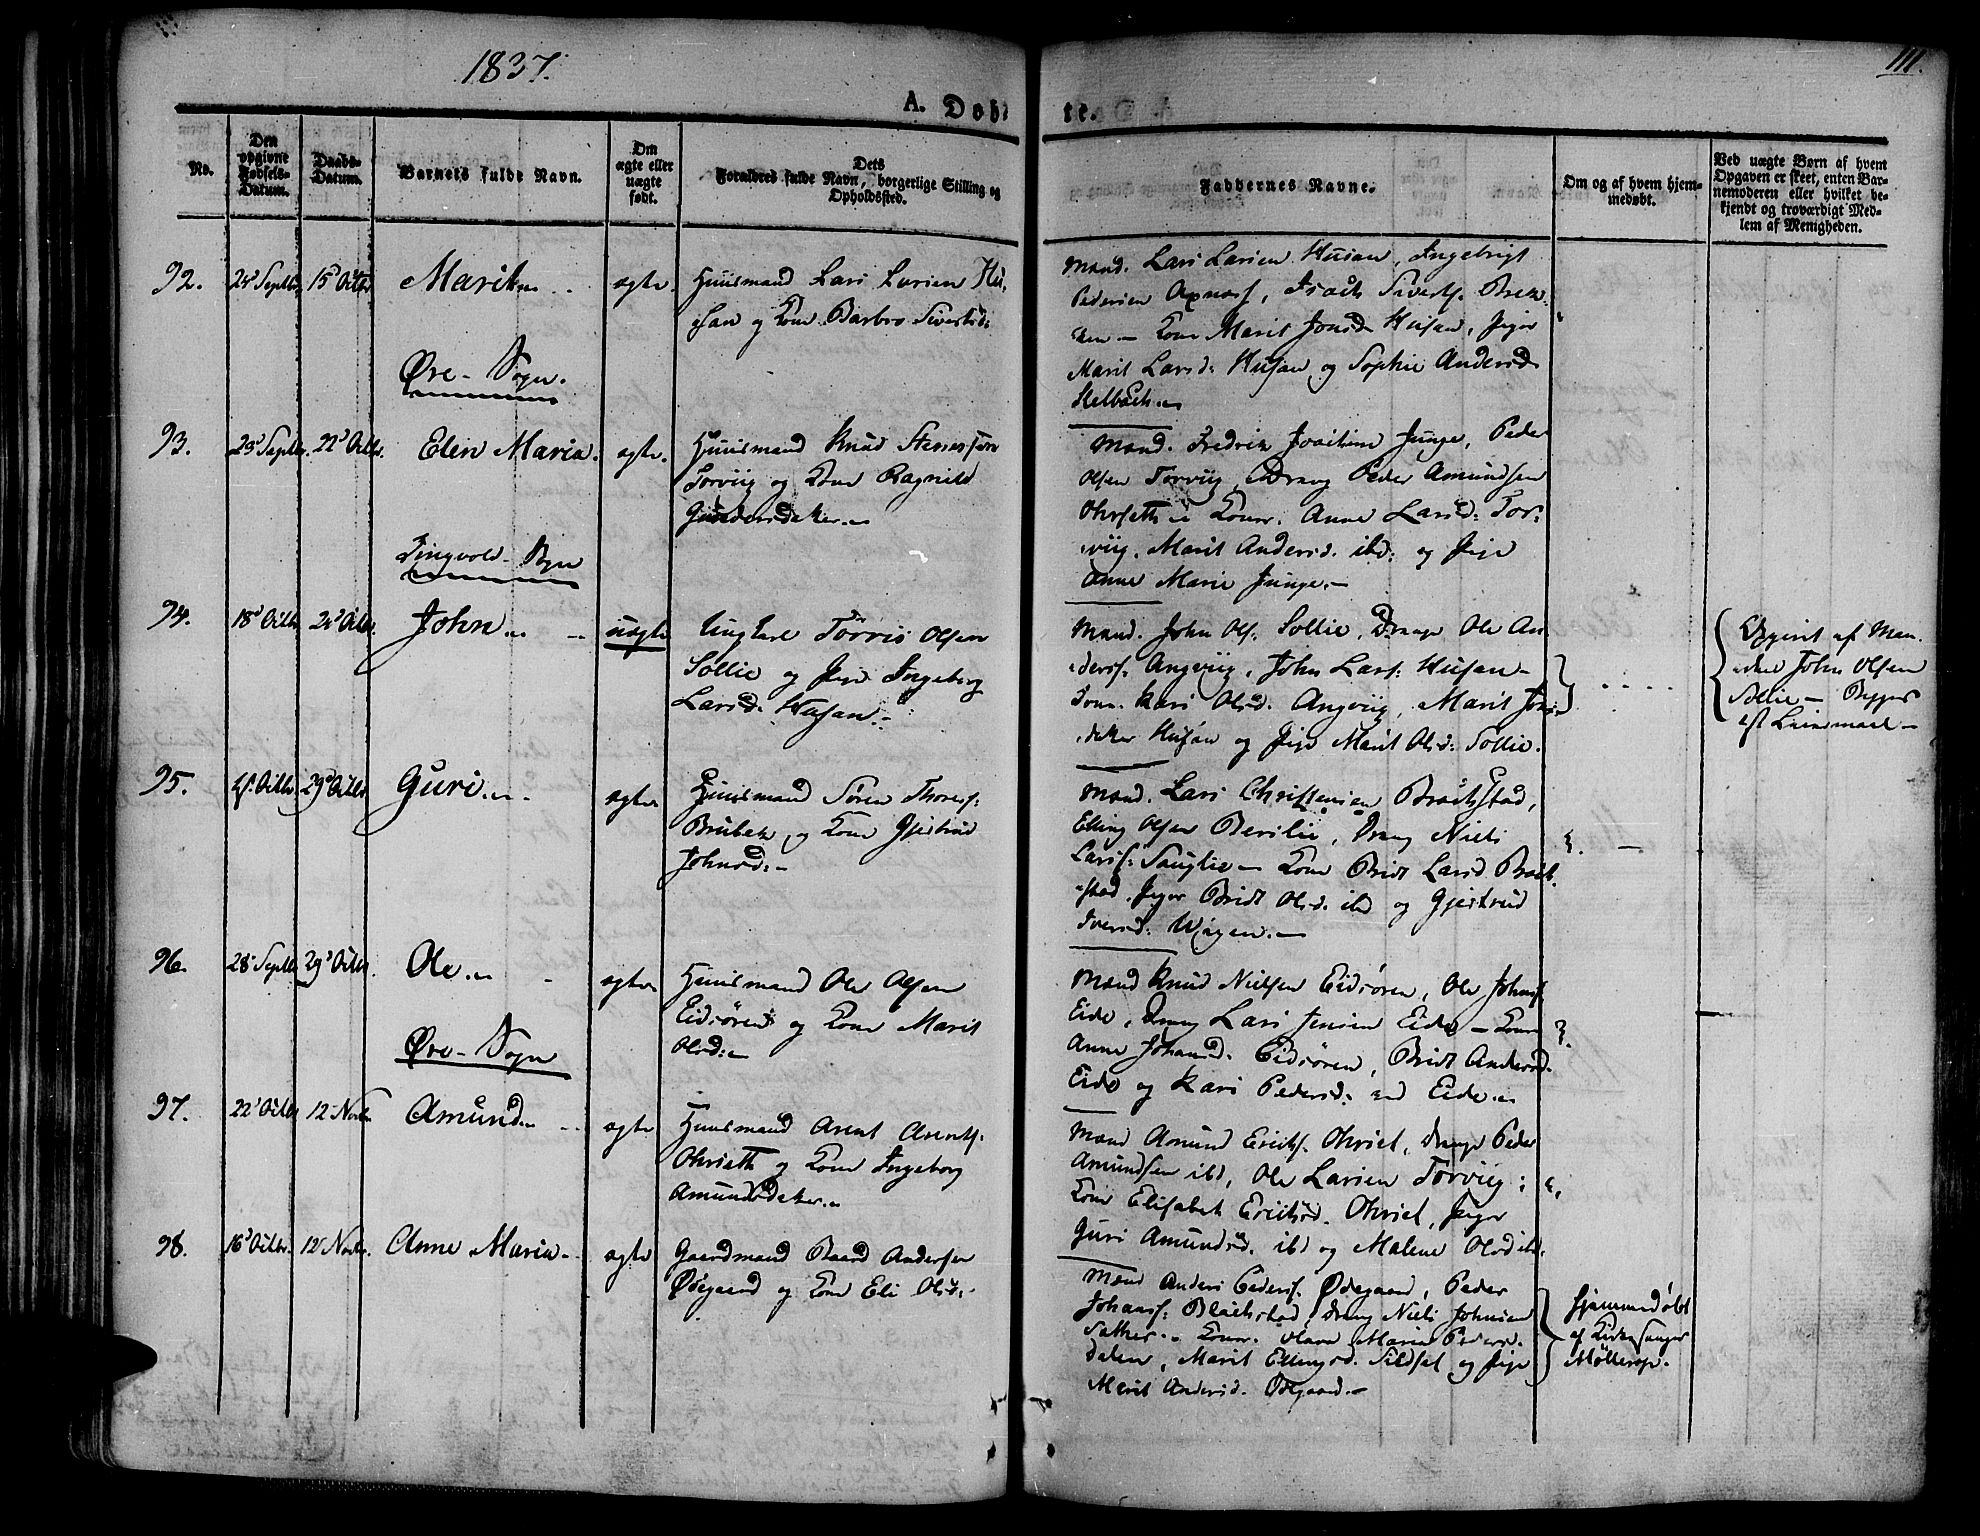 1837.
111.
A. Døbte.
No.
Den opgivne Fødsels-Datum.
Daabs-Datum.
Barnets fulde Navn.
Om ægte eller uægte født.
Dets Forældres fulde Navn, borgerlige Stilling og Opholdssted.
Faddernes Navne.
Om og af hvem hjemmedøbt.
Ved uægte Børn af hvem
Opgaven er skeet, enten Bar-
nemoderen eller hvilket be-
kjendt og troværdigt Med-
lem af Menigheden.
92. 24 Septbr. 15 Octbr. Marit ægte. Huusmand Lars Larsen Hu-
san og Kone Barbro Sivertsd:
Mænd. Lars Larsen Husan, Ingebrigt
Pedersen Aspnæs, Isach Siverts. Brek-
ken - Kone Marit Jonsd. Husan, Piger
Marit Larsd: Husan og Sophie Andersd.
Øre-Sogn.
93. 29 Septbr. 22 Octbr. Elen Maria. ægte. Huusmand Knud
Torviig og Kone Ragnild
Gundersdatter.
Mænd. Fredrik Joachim Junge, Peder
Olsen Torviig, Dreng Peder Amundsen
Ohrseth - Koner. Anne Larsd: Tor-
viig, Marit Andersd. ibd: og Pige
Anne Marie Junge.-
Tingvold-Sogn
94. 18 Octbr. 22 Octbr. John uægte Ungkarl Torris Olsen
Sollie og Pige Ingeborg
Larsd. Husan.-
Mænd. John Ols. Sollie, Drenge Ole An-
derss. Angviig, John Lars. Husan -
Kone Kari Olsd. Angviig, Marit Jons-
datter Husan og Pige Marit Olsd: Sollie.
Opgivet af Man-
den John Olsen
Sollie - Begges
1st Leiermaal -
95. Octbr. 29 Octbr. Guri ægte Huusmand Søren Thores:
Brubek og Kone Gjertrud
Johnsd:-
Mænd. Lars Christensen Brachstad,
Elling Olsen Berslie, Dreng Niels
Larss: Sanglie - Kone Bridt Larsd Brach-
stad. Piger Bridt Olsd. ibd og Gjertrud
Iversd: Wågen.-
96. 28 Septbr. 29 Octbr. Ole ægte Huusmand Ole Olsen
Eidsøren og Kone Marit
Olsd:
Mænd Knud Nielsen Eidsøren, Ole Johns.
Eide, Dreng Lars Jensen Eide - Kone
Anne Johansd. Eidsøren, Bridt Andersd.
Eide og Kari Pedersd: Eide.
Øre-Sogn
97. 22 Octbr. 12 Novbr. Amund ægte Huusmand Arnt Arnts:
Ohrseth og Kone Ingeborg
Amundsdatter.
Mænd Amund Erichs. Ohrset, Drenge Peder
Amundsen ibd, Ole Larsen Torviig:
Kone Elisabet Erichsd. Ohrset, Piger
Guri Amundsd. ibd og Malene Olsd ibd.
98. 16 Octbr. 12 Novbr. Anne Maria ægte Gaardmand Baard Andersen
Ødegaard og Kone Eli Olsd:
Mænd Anders Peders. Ødegaard, Peder
Johans: Blachstad, Dreng Niels Johnsen
Sather.- Koner. Maria Pedersd.
Dalen, Marit Ellingsd. Sildset og Pige
Marit Andersd. Ødegaard.-
Hjemmedøbt
af Kirkesanger
Møllerop.